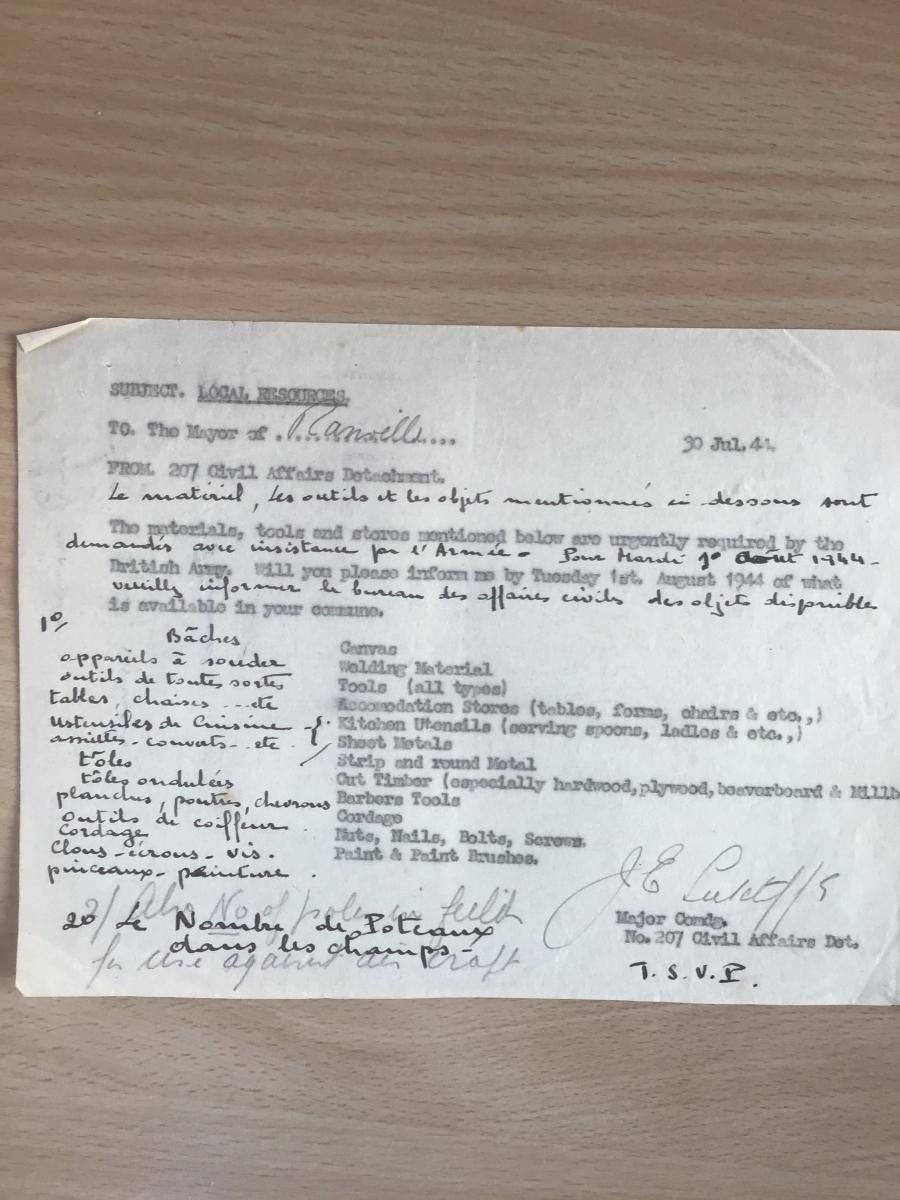 SUBJECT. LOCAL RESOURCES.
TO. The Mayor of ..Ranville....
30 Jul.44.
FROM 207 Civil Affairs Detachment.
Le matériel, les outils et les objets mentionnés ci-dessous sont
The materials, tools and stores mentioned below are urgently required by the
demandés avec insistance par l'Armée - Pour Mardi 1° Août 1944 -
British Army. Will you please inform me by Tuesday 1st. August 1944 of what
veuillez informer le bureau des affaires civils des objets disponibles
is available in your commune.
1°/
Bâches Canvas
appareils à souder Welding Material
outils de toutes sortes Tools (all types)
tables, chaises ... etc Accomodation Stores (tables, forms, chairs & etc.,)
ustensiles de Cuisine - Kitchen Utensils (serving spoons, ladles & etc.,)
assiettes - couverts - etc. Sheet Metals
tôles Strip and round Metal
tôles ondulées Cut Timber (especially hardwood, plywood, beaverboard & Millb
planches, poutres, chevrons Barbers Tools
outils de coiffeur Cordage
Cordage Nuts, Nails, Bolts, Screws.
Clous - écrous - vis. Paint & Paint Brushes.
pinceaux - peinture.
J E
Major Comdg.
No. 207 Civil Affairs Det.
2/ Also No of poles in field
for use against air craft
2° Le Nombre de Poteaux
dans les champs -
T. S. V. P.